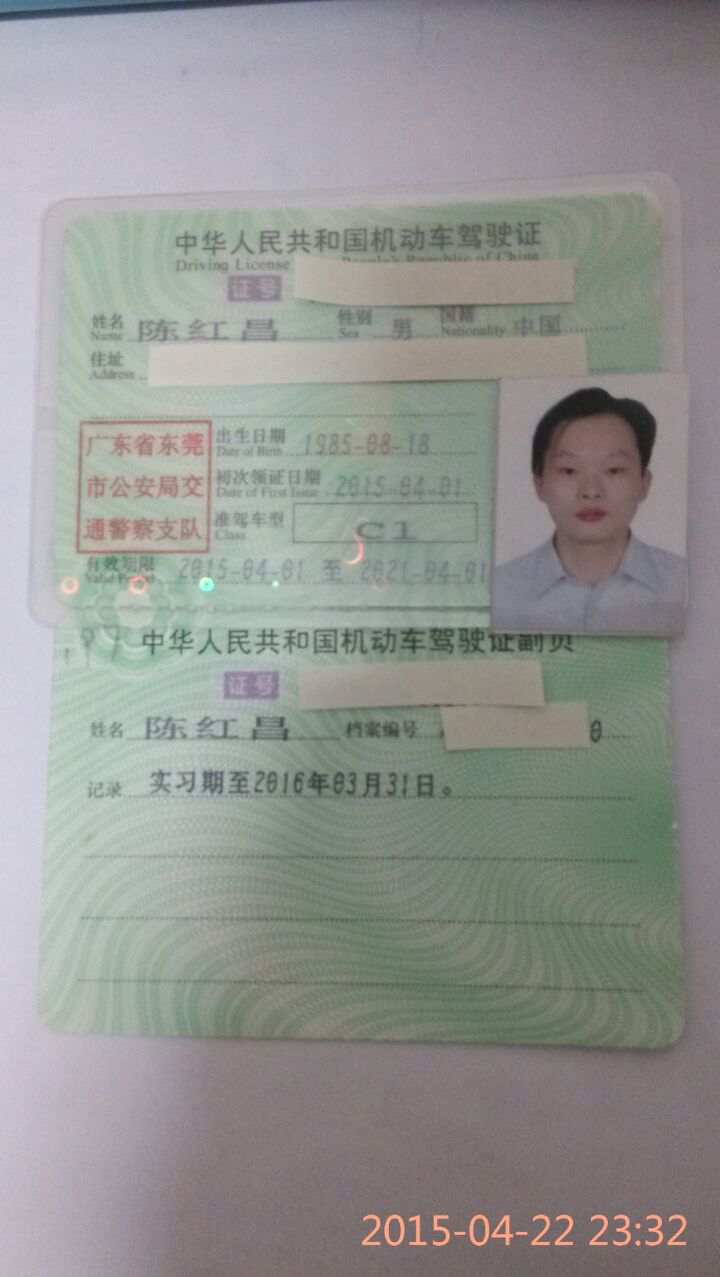 中华人民共和国机动车驾驶证
Driving License People's Republic of China
证号
姓名 陈红昌 性别 男 国籍 中国
Name Sex Nationality
住址
Address
广东省东莞
市公安局交
通警察支队
出生日期 1985-08-18
Date of Birth
初次领证日期 2015-04-01
Date of First Issue
准驾车型 C1
Class
有效期限 2015-04-01 至 2021-04-01
Valid Period
中华人民共和国机动车驾驶证副页
证号
姓名 陈红昌 档案编号 0
记录 实习期至2016年03月31日。
2015-04-22 23:32